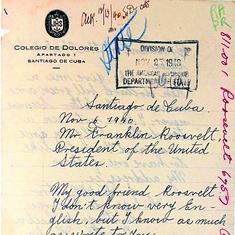 COLEGIO DE DOLORES
APARTADO 1
SANTIAGO DE CUBA
DIVISION OF
NOV 27 1940
THE AMERICAN REPUBLICS
DEPARTMENT OF STATE
Santiago de Cuba.
Nov 6 1940.
Mr. Franklin Roosvelt,
President of the United
States.
My good friend Roosvelt
I don't know very En-
glish, but I know as much
as write to you.